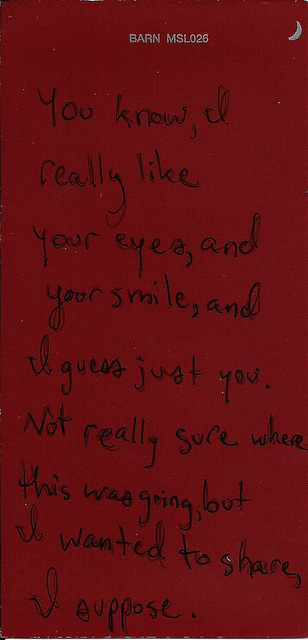 BARN MSL026
You know, I
really like
your eyes, and
your smile, and
I guess just you.
Not really sure where
this was going, but
I wanted to share,
I suppose.